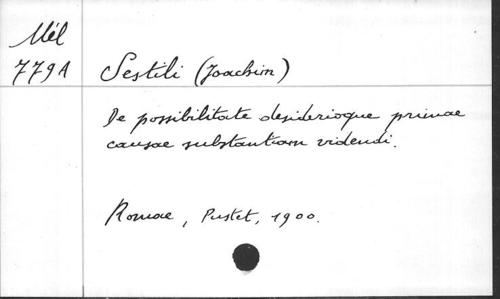 Mél
779A
Sestili (Joachim)
De possibilitate desiderioque primae
causae substantiam videndi.
Romae, Pustet, 1900.